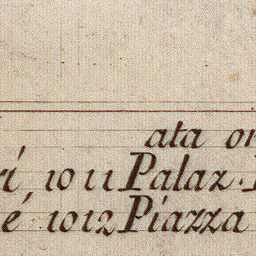 ata or
ri 1011 Palaz.
é 1012 Piazza